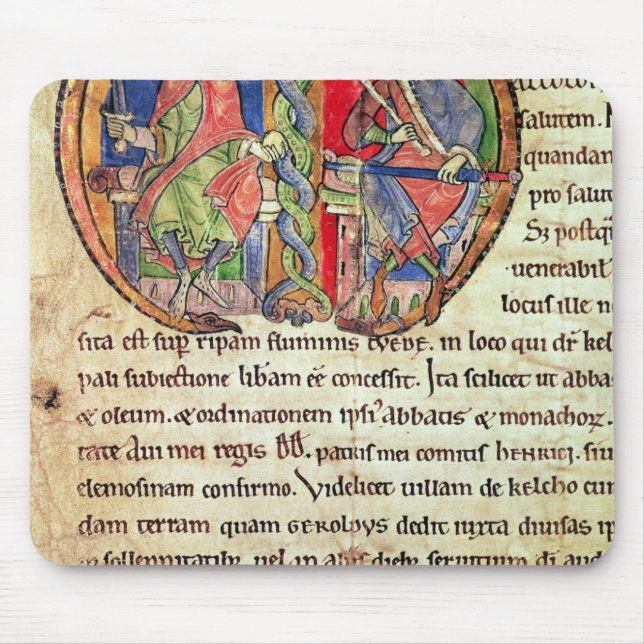 salutem.
quandam
pro salut
Sꝫ postq̄
uenerabil
locus ille n
sita est sup̱ ripam fluminis tvede. in loco qui dr̄ kel
pali subiectione lib̄am eē concessit. Ita scilicet ut abba
& oleum. & ordinationem ipsiꝰ abbatis & monachoꝝ
tate aui mei regis patris mei comitis henrici. siu
elemosinam confirmo. Videlicet uillam de kelcho cu
dam terram quam Geroldvs dedit iuxta diuisas
in sollennitatibꝫ uel in aliis diebꝫ seruitium di aud